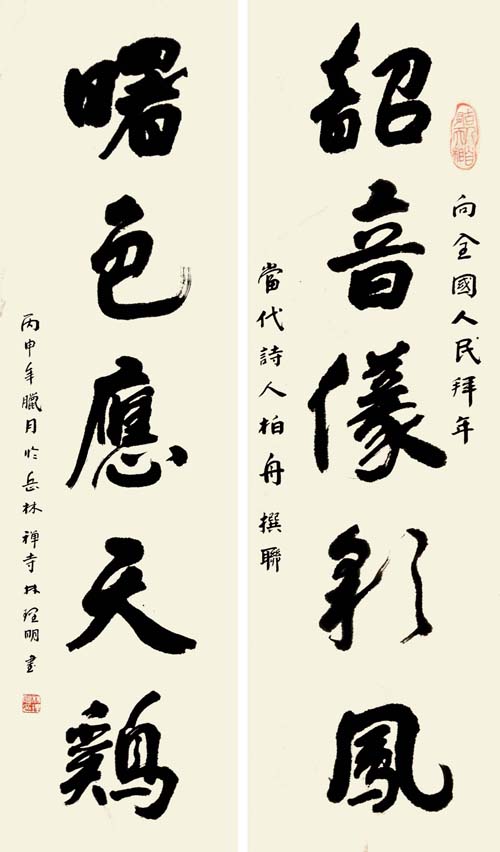 向全國人民拜年
韶音儀彩鳳
當代詩人柏舟撰聯
曙色應天鷄
丙申年臘月於岳林禅寺林理明書